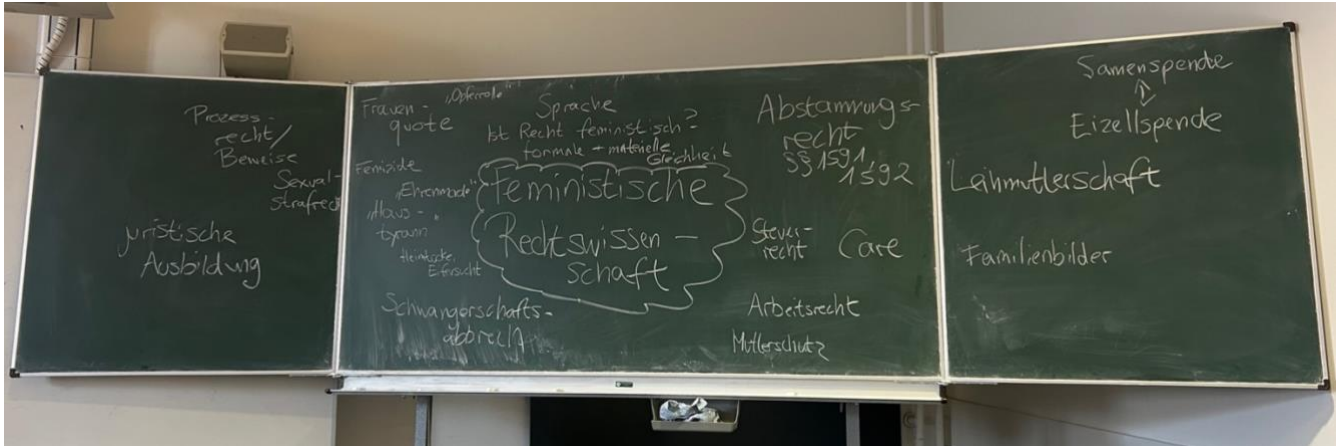 Prozess-
recht/
Beweise
Sexual-
strafrecht
juristische
Ausbildung
Frauen-
quote
"Opferrolle"
Sprache
Ist Recht feministisch?
formale + materielle
Gleichheit
Femizide
"Ehrenmorde"
"Haus-
tyrann"
Heimtücke,
Eifersucht
Feministische
Rechtswissen-
schaft
Schwangerschafts-
abbruch
Abstammungs-
recht
§§ 1591,
1592
Steuer-
recht
Care
Arbeitsrecht
Mutterschutz
Samenspende
Eizellspende
Leihmutterschaft
Familienbilder